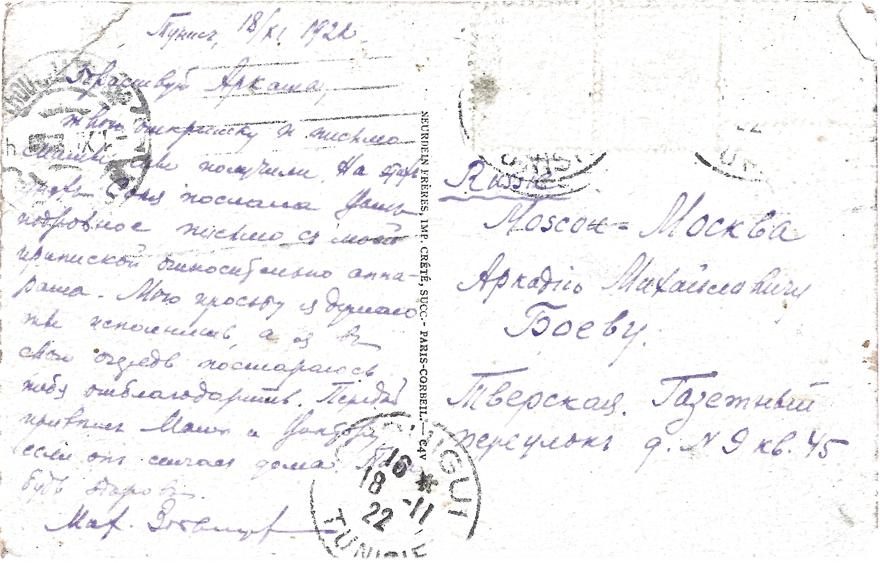 Тунисъ, 18/XI 1922.
Здравствуй Аркаша,
твою открытку и письмо
получили. На
Соня послала
подробное письмо съ моей
припиской относительно аппа-
рата. Мою просьбу я думаю
ты исполнишь, а я въ
свою очередь постараюсь
тебя отблагодарить. Передай
приветъ и
если онъ сейчасъ дома.
будь здоровъ.
NEURDEIN FRÈRES, IMP. CRÉTÉ, SUCC.- PARIS-CORBEIL.— C4V
Russie
Moscou - Москва
Аркадію Михайловичу
Боеву.
Тверская. Газетный
переулокъ д. N 9 кв. 45
16
18 -11
22
TUNISIE